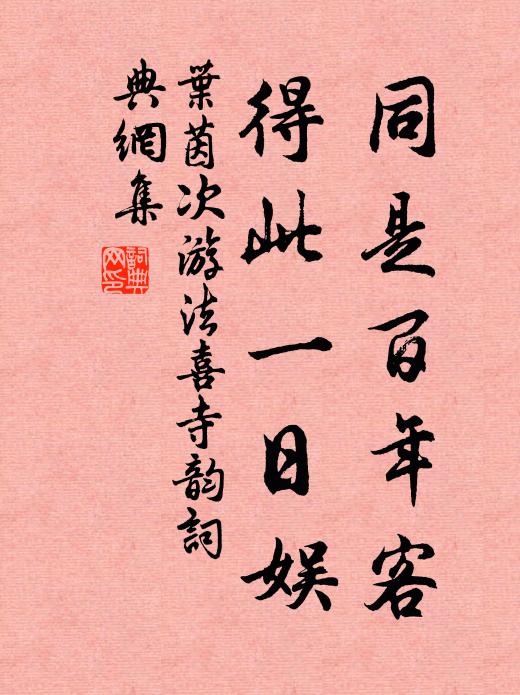 同是百年客
得此一日娱
葉茵次游法喜寺韵詞
典網集
詞典网印